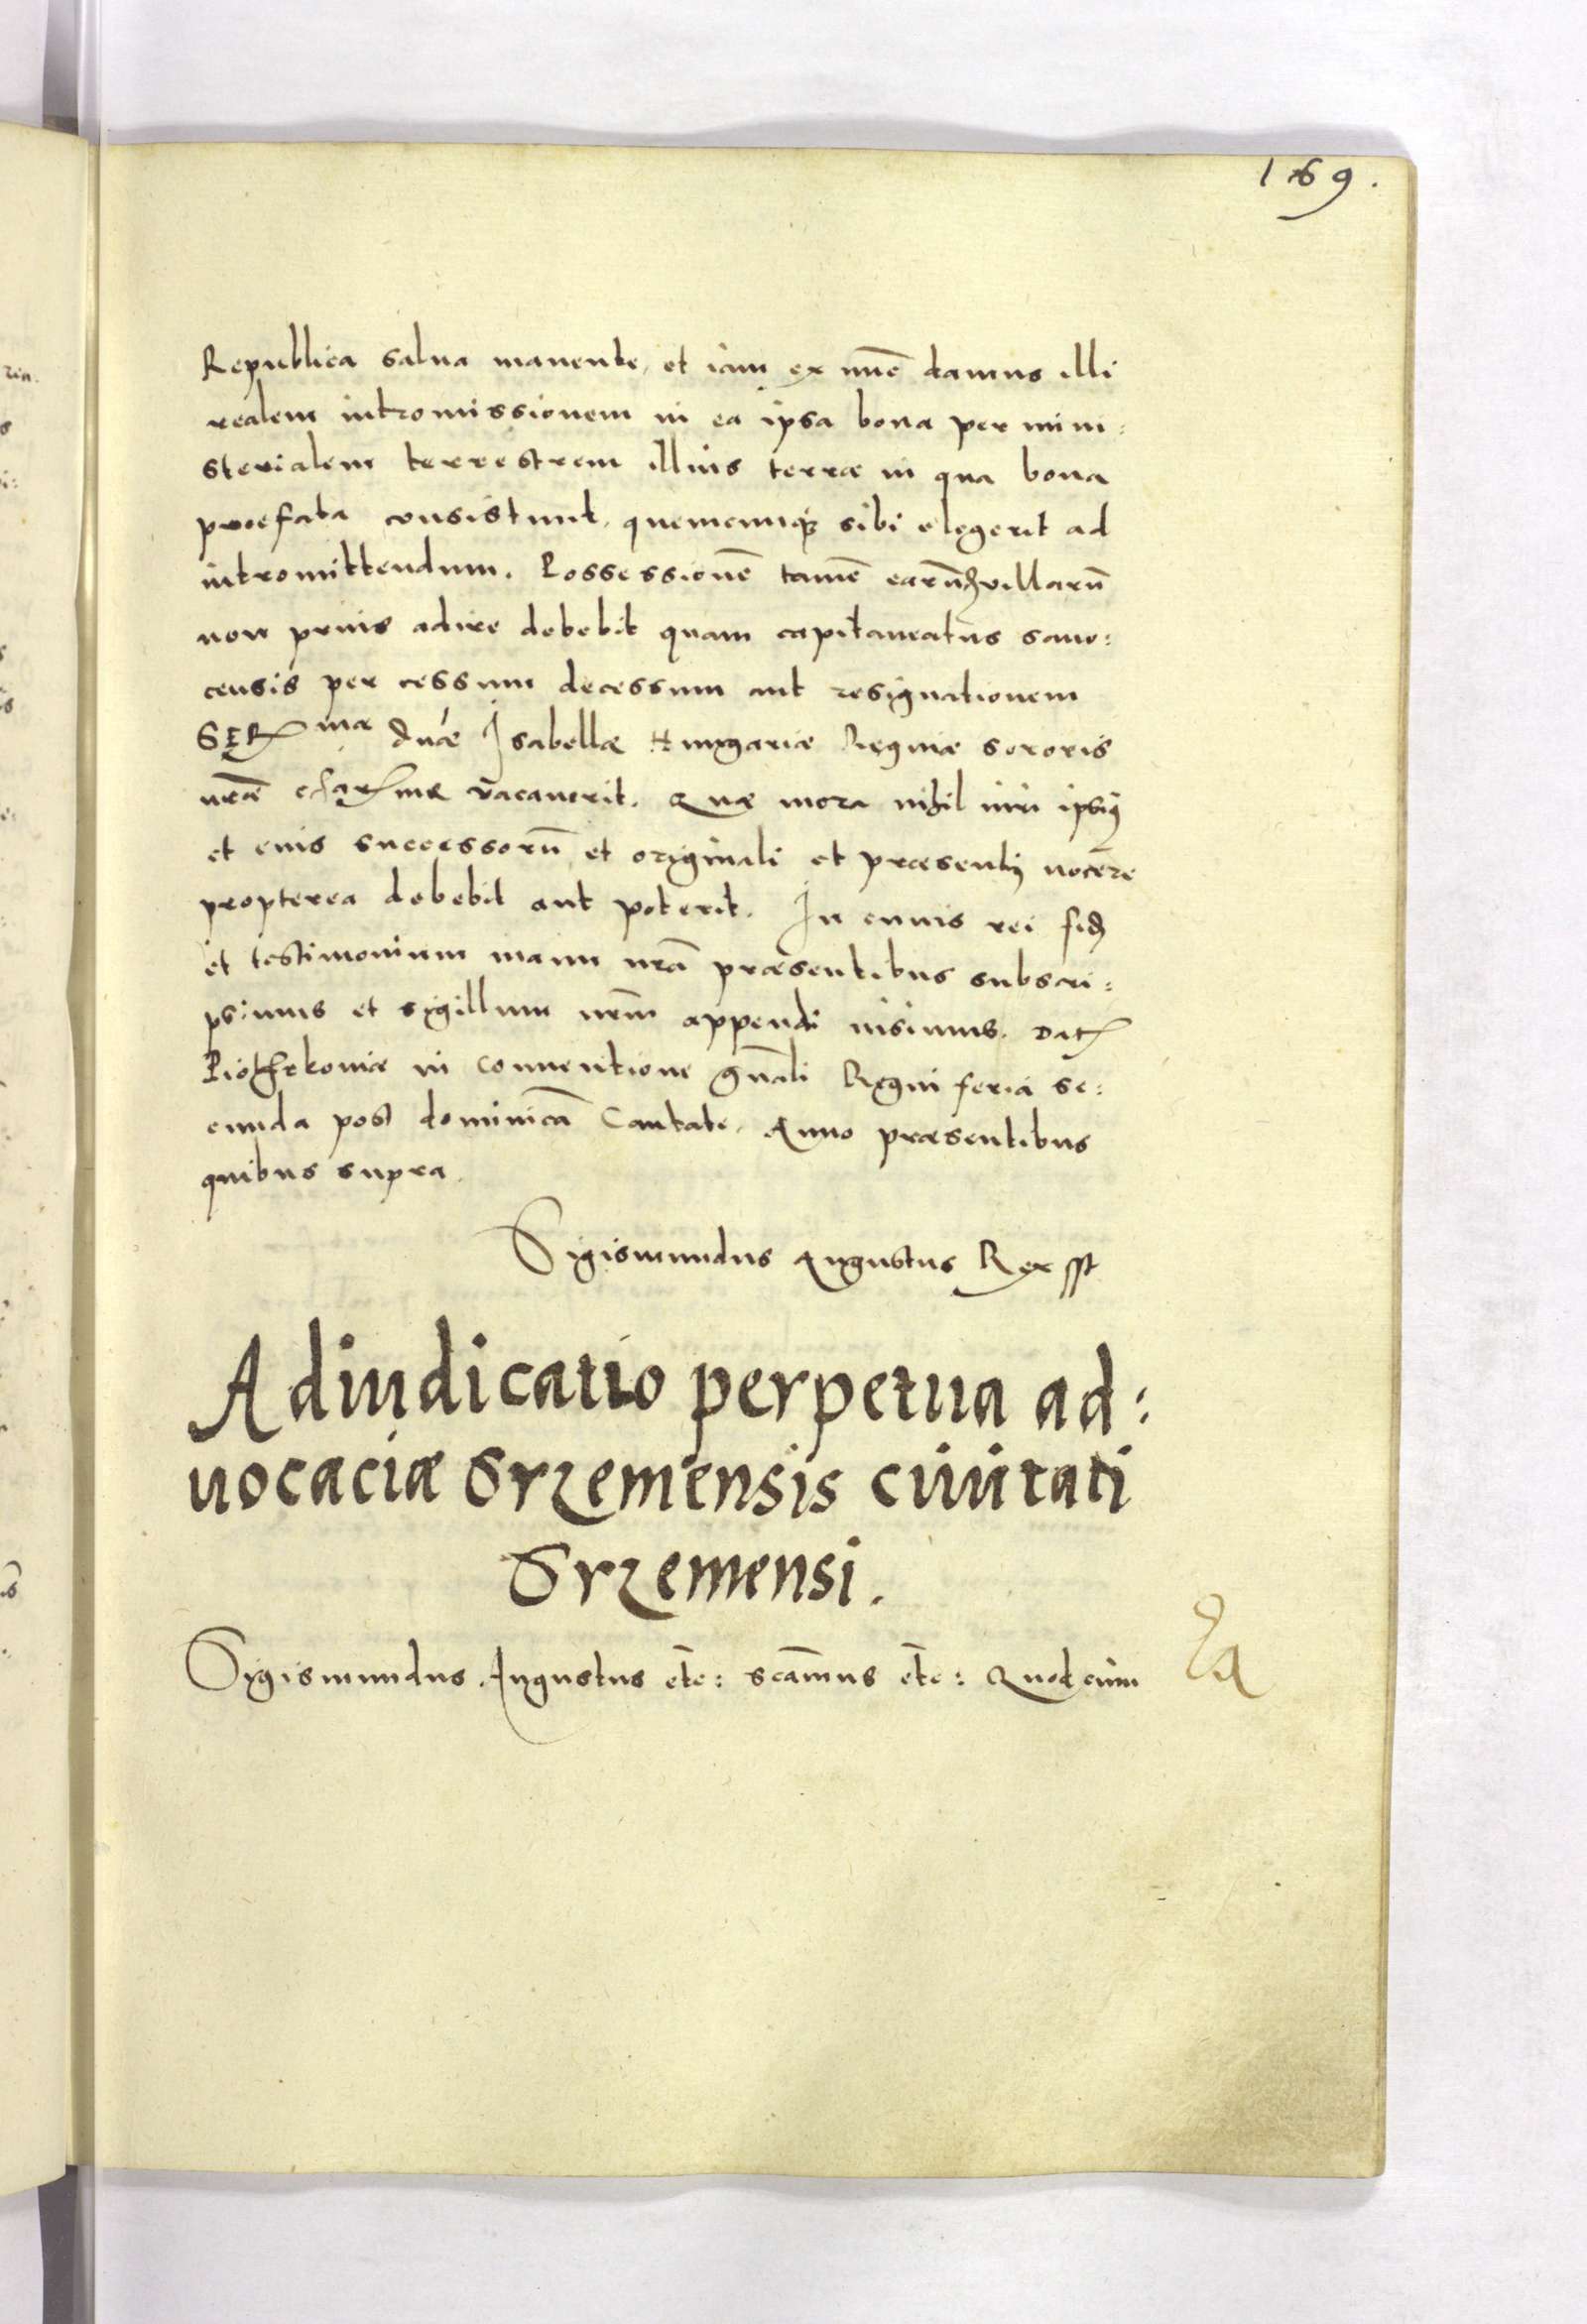 169.
Republica salua manente, et iam ex nūc damus illi
realem intromissionem in ea ipsa bona per mini:
sterialem terrestrem illius terræ in qua bona
præfata consistunt, quemcunq; sibi elegerit ad
intromittendum. Possessionē tamē earūd villarū
non prius adire debebit quam capitaneatus sano:
censis per cessum decessum aut resignationem
SER mæ dnæ Isabellæ Hungariæ Reginæ sororis
nræ char mæ vacauerit. Quæ mora nihil iuri ipsiq
et eius successorū et originali et præsentij nocere
propterea debebit aut poterit. In cuius rei fid
et testimonium manu nrā præsentibus subscri:
psimus et sigillum nrm̄ appendi iusimus. Dat
Piothrkouiæ in Conuentione gnāli Regni feria se:
cunda post dominicā Cantate. Anno præsentibus
quibus supra.
Sigismundus Augustus Rex sst
Adiudicatio perpetua ad:
uocaciæ Srzemensis ciuitati
Srzemensi.
Sigismundus Augustus etc: Scāmus etc: Quod cum